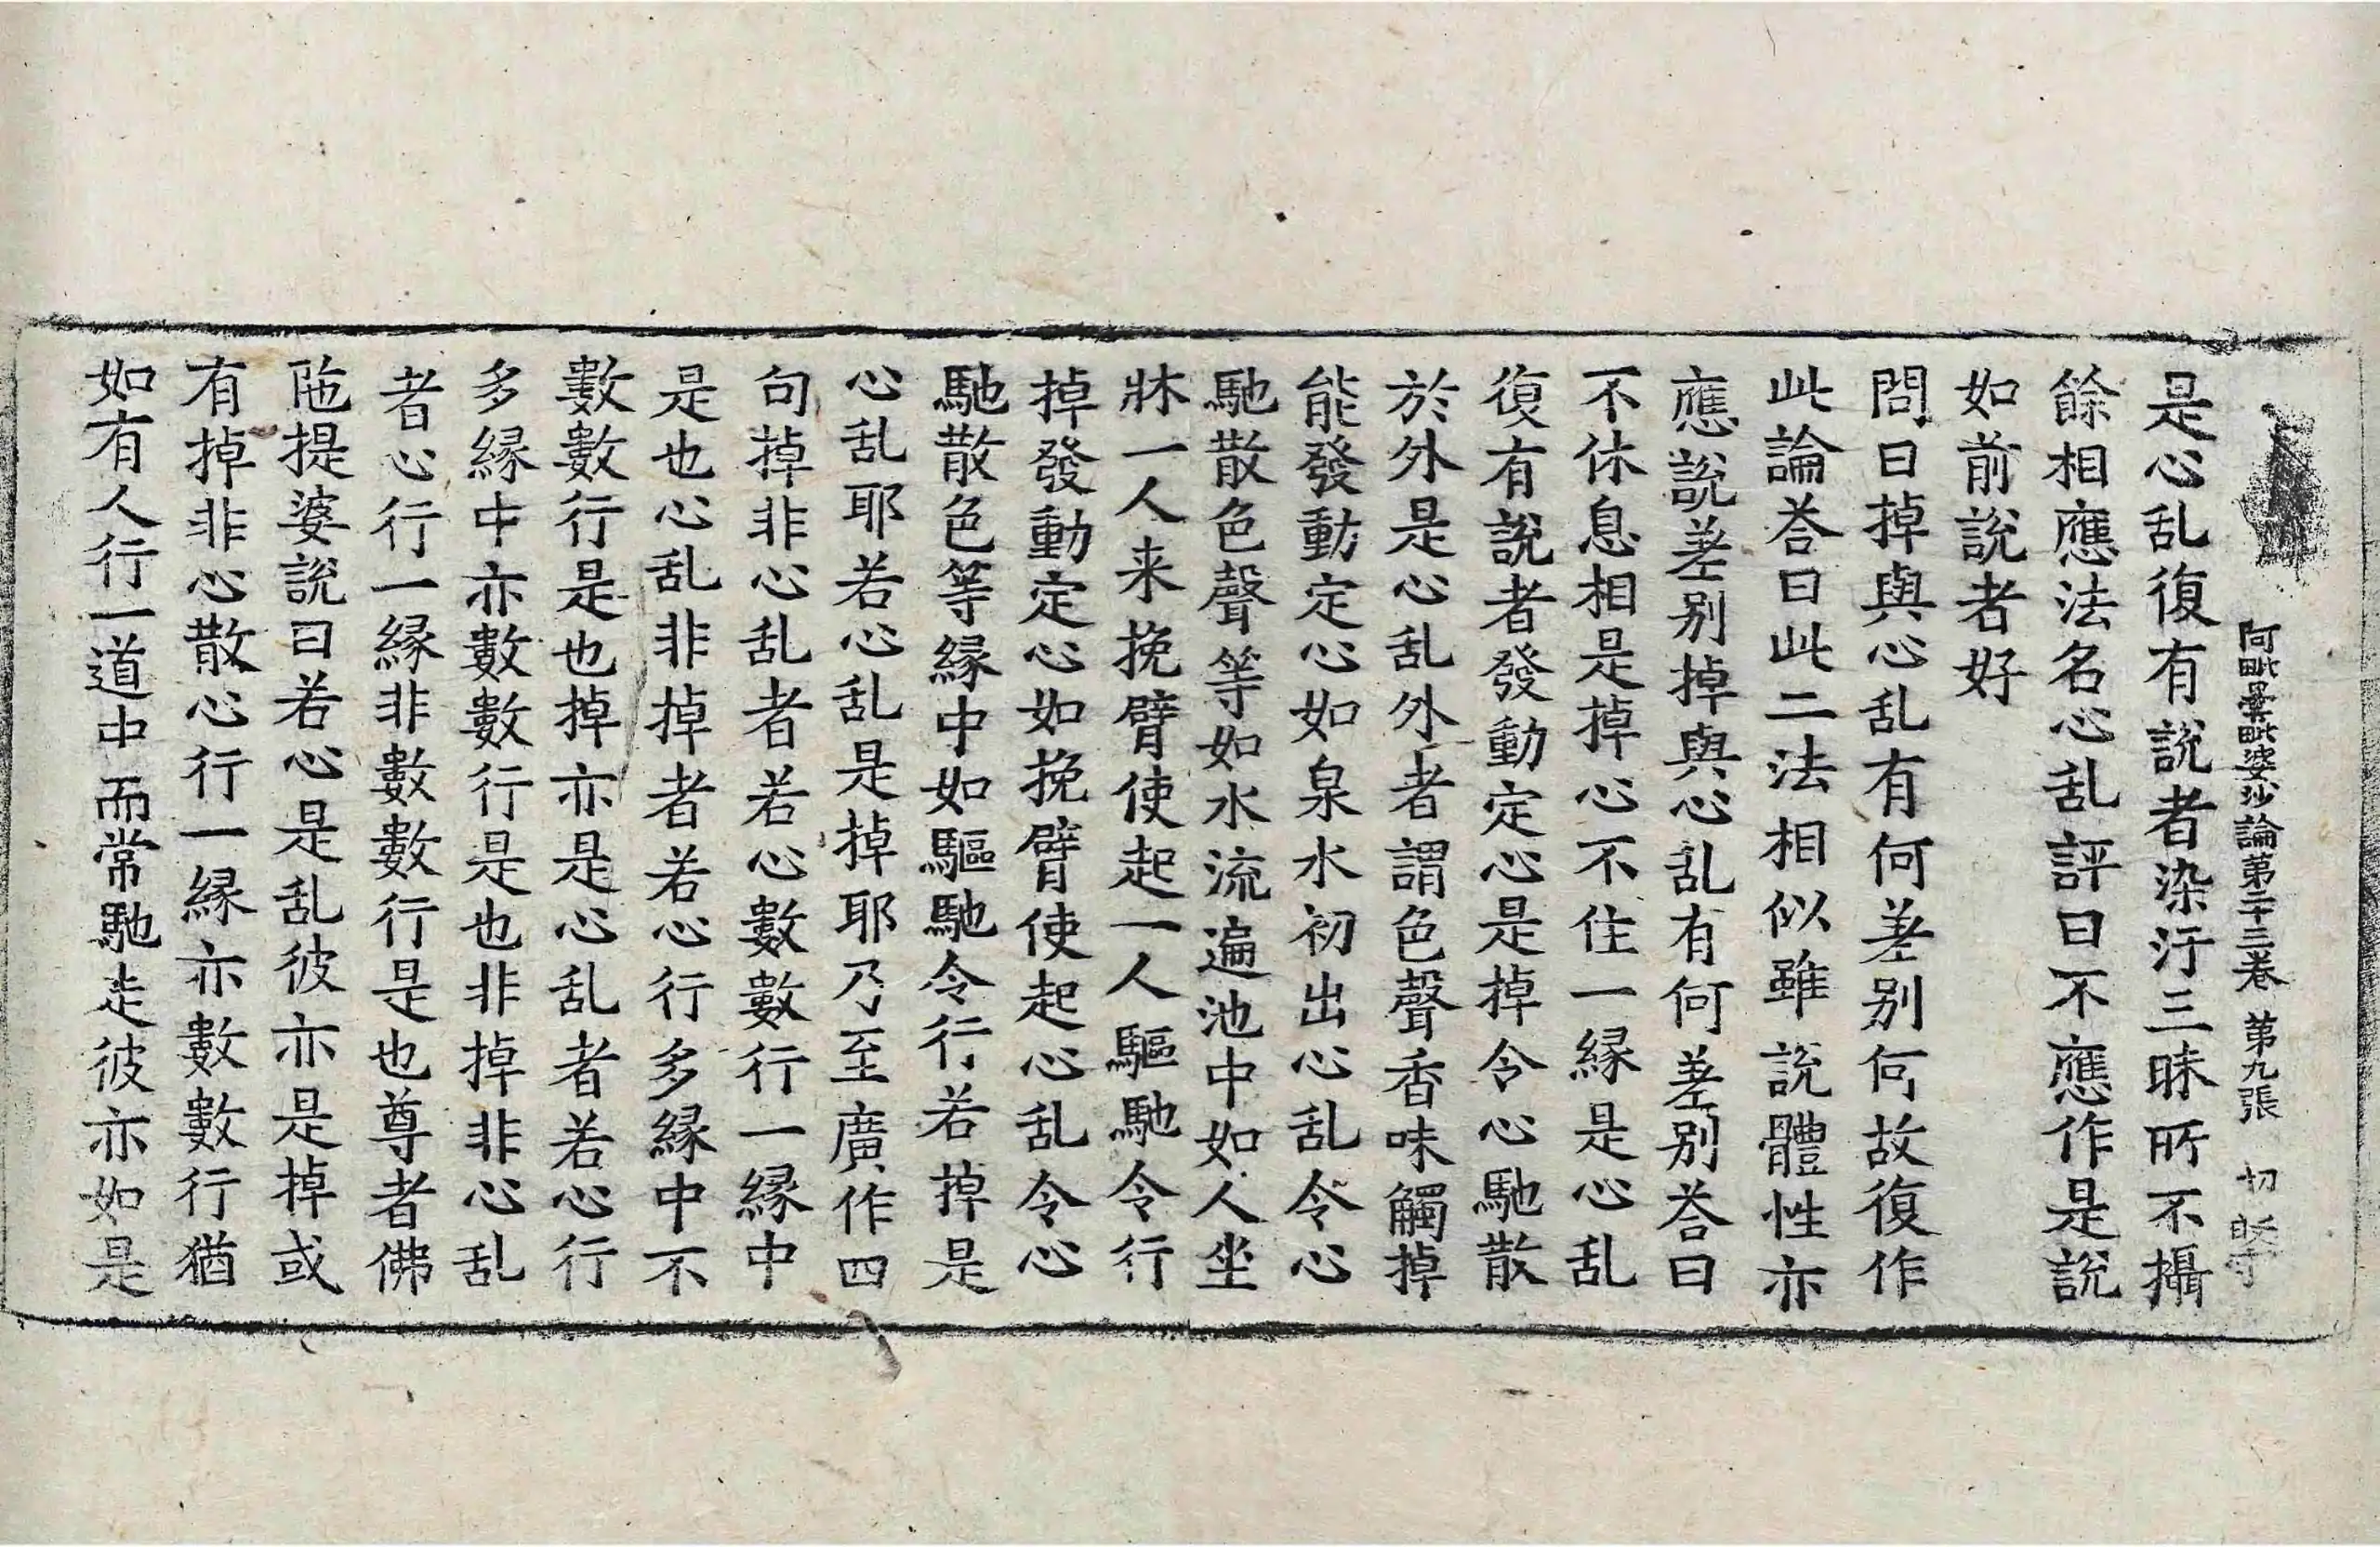 阿毗曇毗婆沙論第二十三卷 第九張 切
是心乱復有説者染汙三昧所不攝
餘相應法名心乱評曰不應作是説
如前説者好
問曰掉與心乱有何差别何故復作
此論荅曰此二法相似雖説體性亦
應説差别掉與心乱有何差别荅曰
不休息相是掉心不住一縁是心乱
復有説者發動定心是掉令心馳散
於外是心乱外者謂色聲香味觸掉
能發動定心如泉水初出心乱令心
馳散色聲等如水流遍池中如人坐
牀一人来挽臂使起一人驅馳令行
掉發動定心如挽臂使起心乱令心
馳散色等縁中如驅馳令行若掉是
心乱耶若心乱是掉耶乃至廣作四
句掉非心乱者若心數數行一縁中
是也心乱非掉者若心行多縁中不
數數行是也掉亦是心乱者若心行
多縁中亦數數行是也非掉非心乱
者心行一縁非數數行是也尊者佛
陁提婆説曰若心是乱彼亦是掉或
有掉非心散心行一縁亦數數行猶
如有人行一道中而常馳走彼亦如是